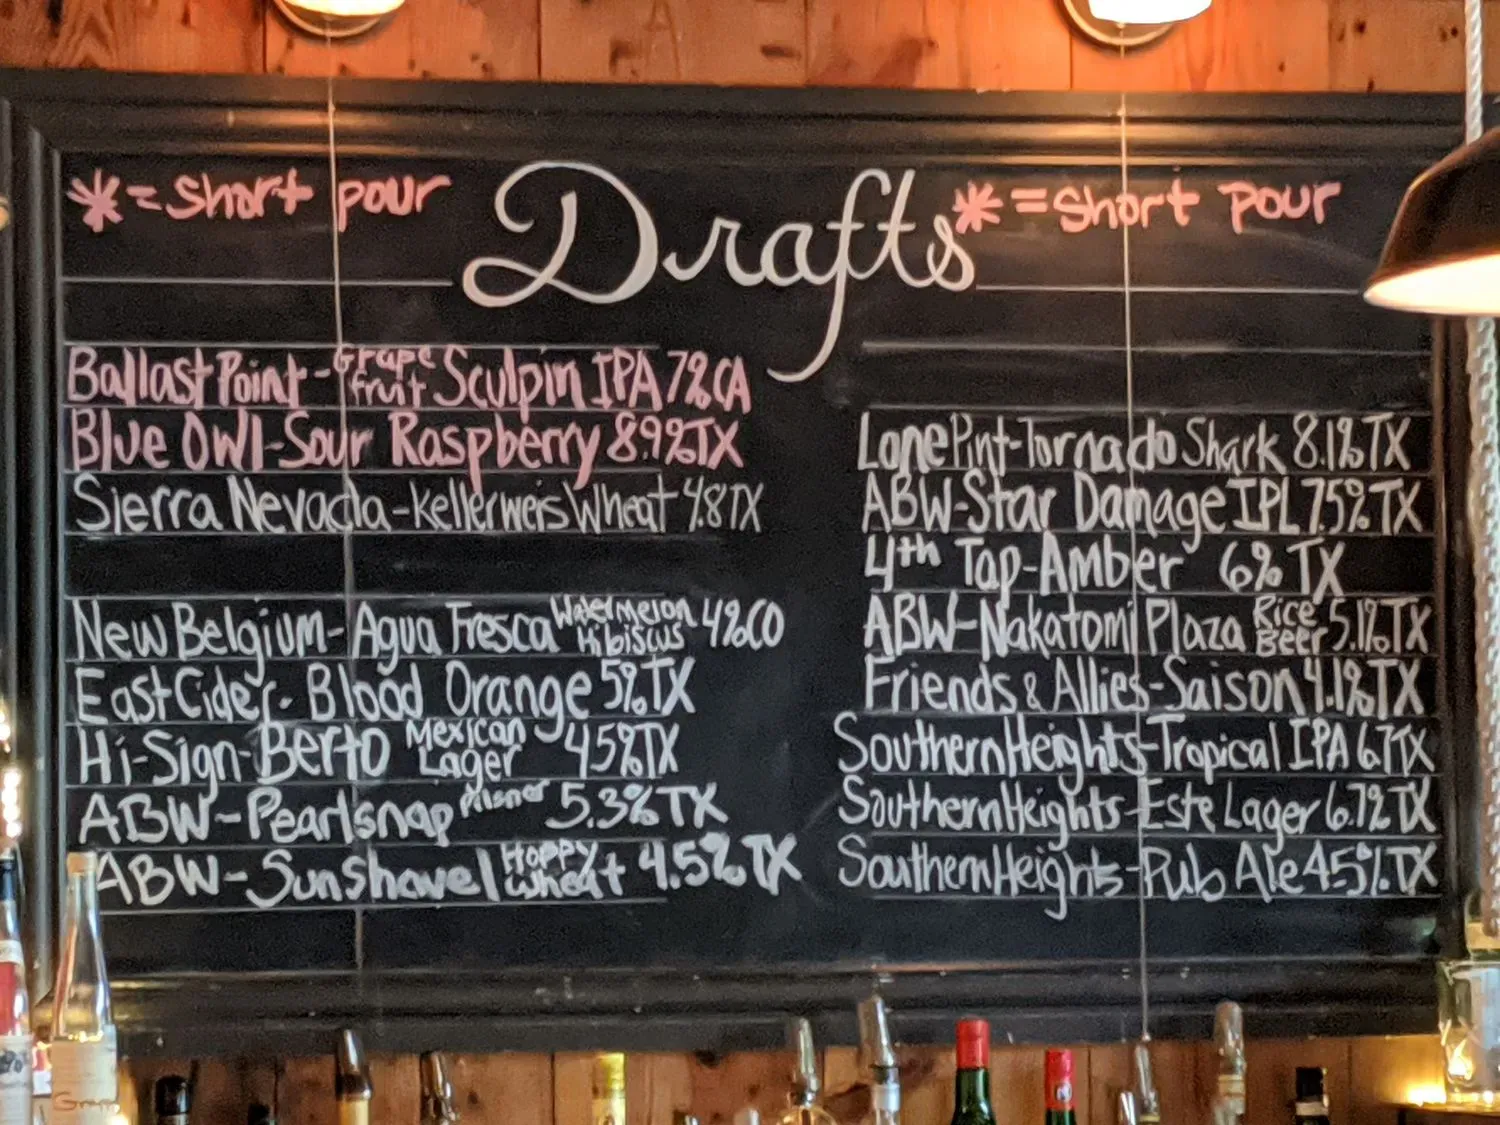 Drafts
* = short pour
Ballast Point - Grape fruit Sculpin IPA 7% CA
Blue Owl - Sour Raspberry 8.9% TX
Sierra Nevada - Kellerweis Wheat 4.8 TX
New Belgium - Agua Fresca Watermelon Hibiscus 4% CO
East Cider - Blood Orange 5% TX
Hi-Sign - Berto Mexican Lager 4.5% TX
ABW - Pearlsnap Pilsner 5.3% TX
ABW - Sunshavel Hoppy Wheat 4.5% TX
* = short pour
Lone Pint - Tornado Shark 8.1% TX
ABW - Star Damage IPL 7.5% TX
4th Tap - Amber 6% TX
ABW - Nakatomi Plaza Rice Beer 5.1% TX
Friends & Allies - Saison 4.1% TX
Southern Heights - Tropical IPA 6.7 TX
Southern Heights - Este Lager 6.7% TX
Southern Heights - Pub Ale 4.5% TX